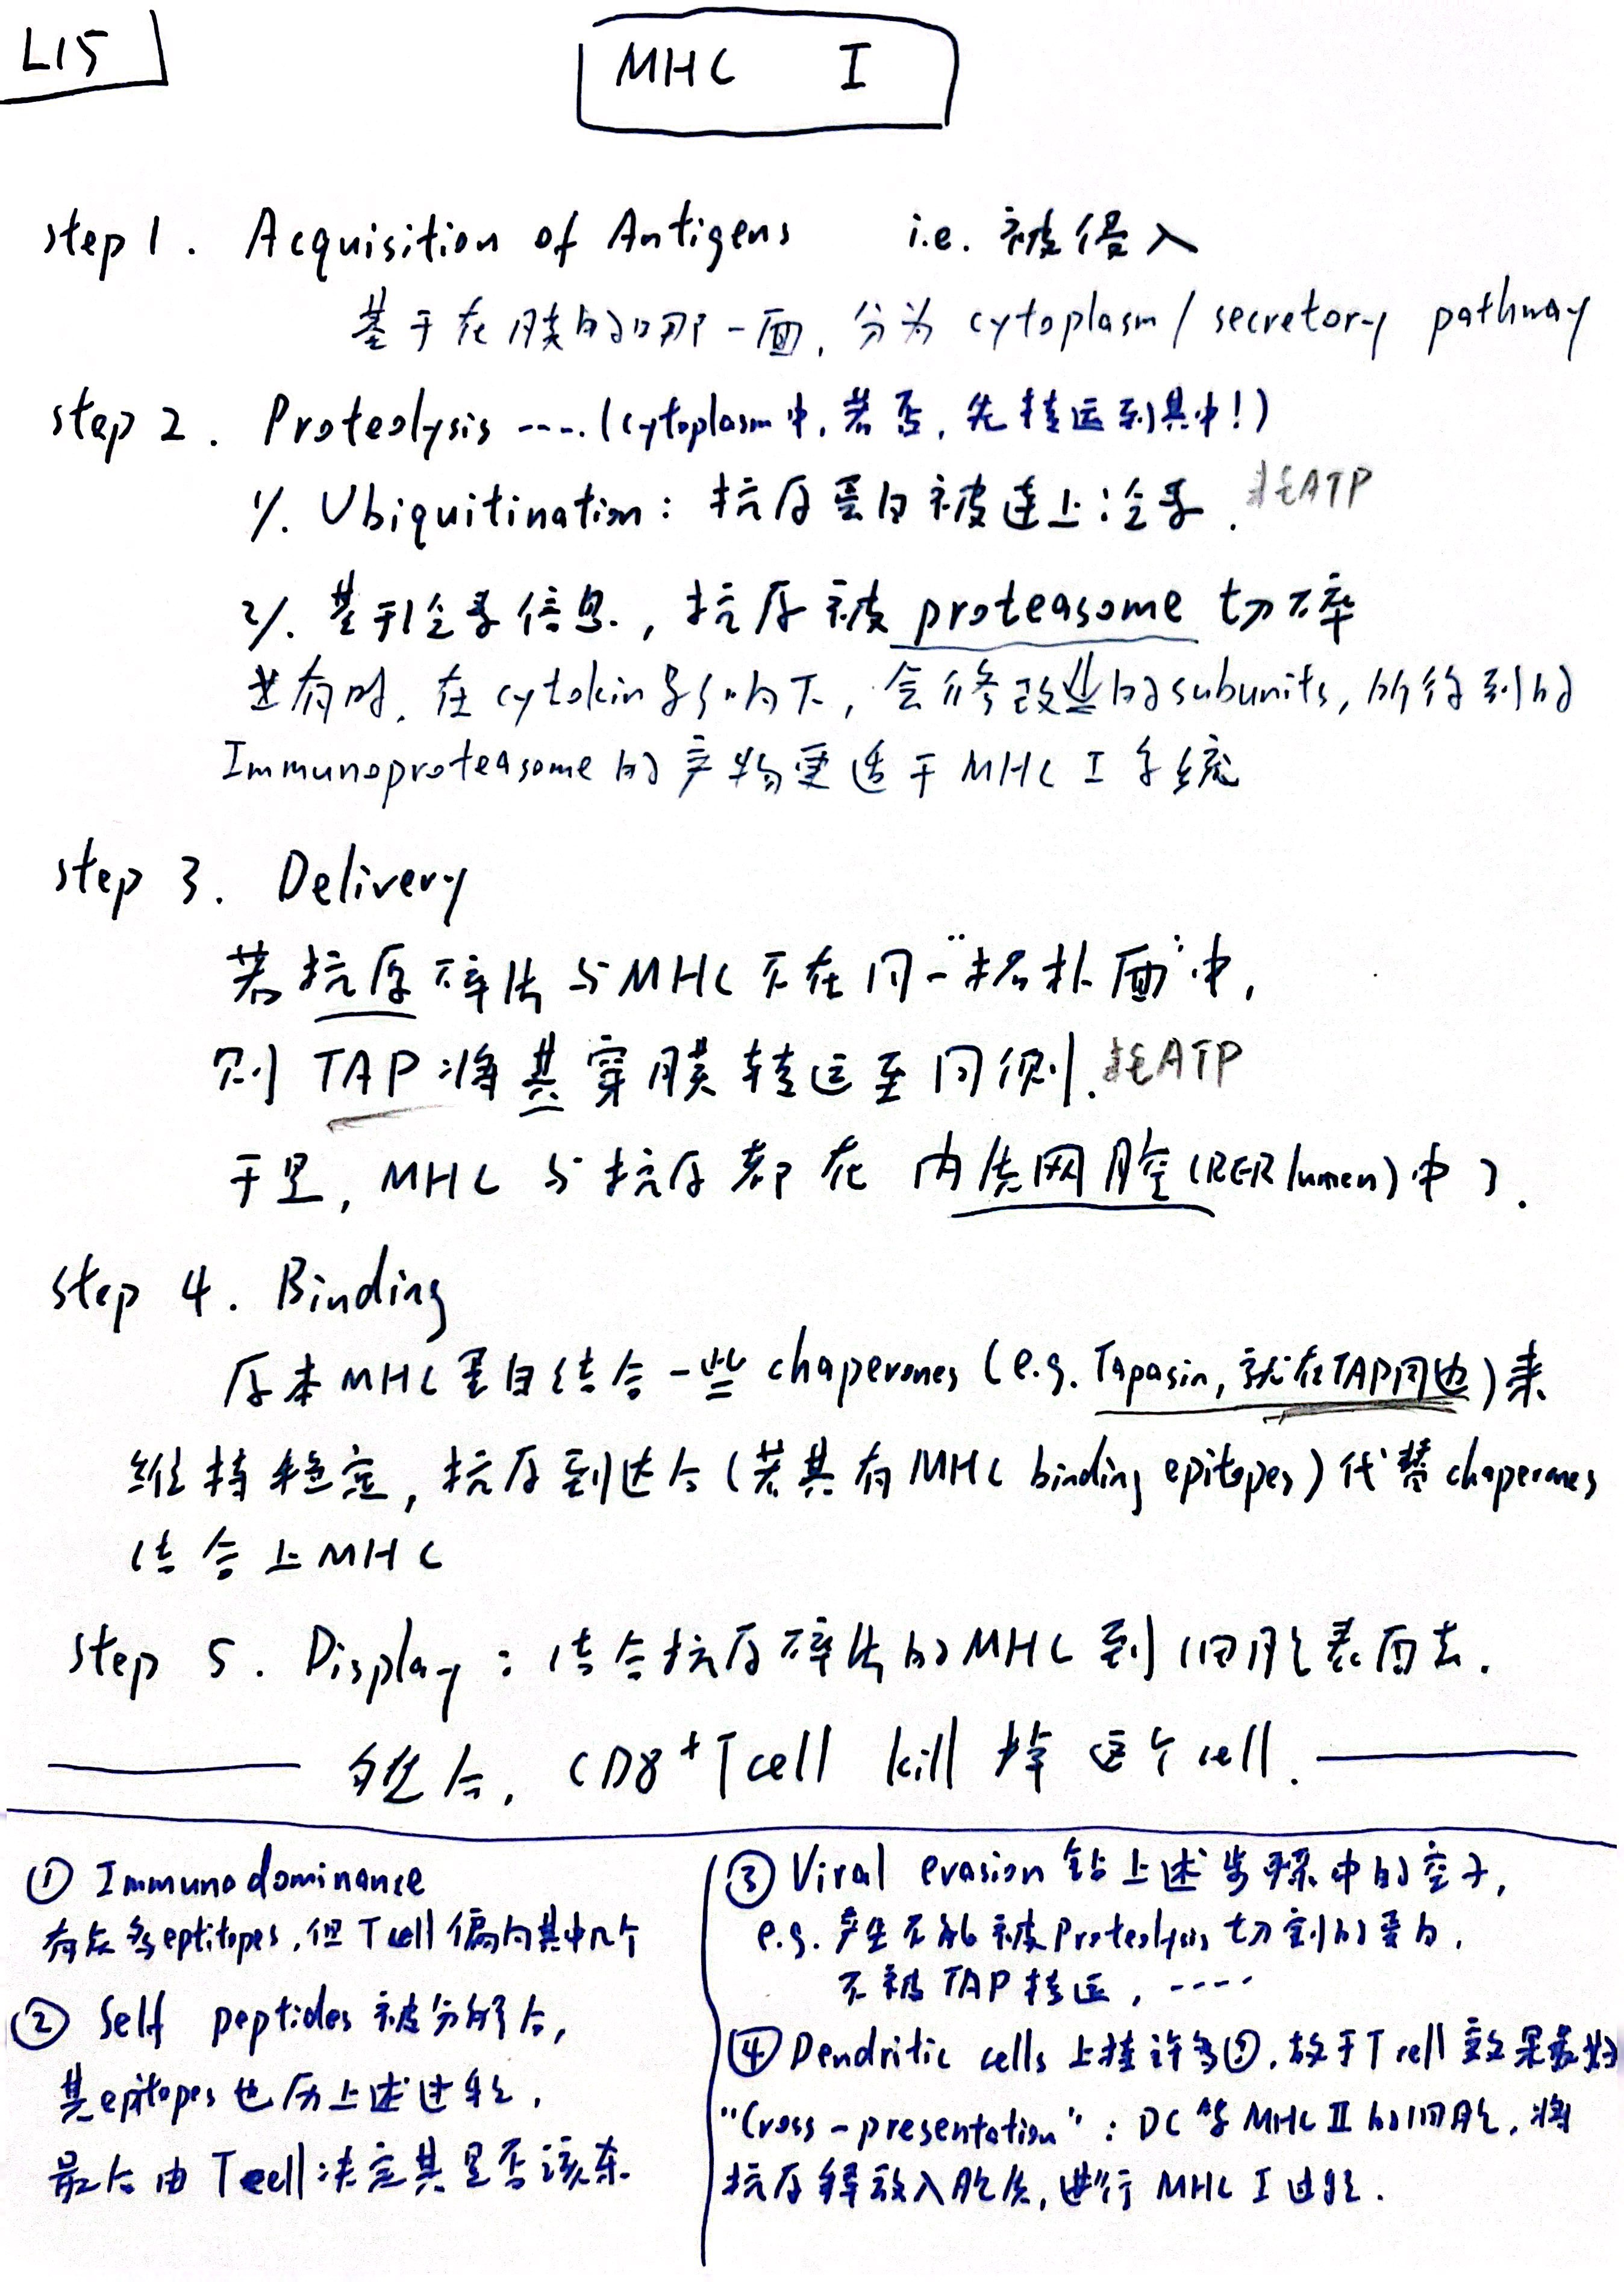 L15
MHC I
step 1. Acquisition of Antigens i.e. 被侵入
基于在膜的哪一面, 分为 cytoplasm / secretory pathway
step 2. Proteolysis ----. (cytoplasm中, 若否, 先转运到其中!)
1/. Ubiquitination: 抗原蛋白被连上泛素. 耗ATP
2/. 基于泛素信息, 抗原被 proteasome 切碎
并有时, 在 cytokin 影响下, 会修改些的subunits, 所得到的
Immunoproteasome的产物更适于 MHC I 系统
step 3. Delivery
若抗原碎片与MHC不在同一"拓扑面"中,
则 TAP 将其穿膜转运至同侧. 耗ATP
于是, MHC 与抗原都在 内质网腔 (RER lumen) 中了.
step 4. Binding
原本MHC蛋白结合一些 chaperones (e.g. Tapasin, 就在TAP周边) 来
维持稳定, 抗原到达后 (若其有 MHC binding epitopes) 代替 chaperones
结合上MHC
step 5. Display: 结合抗原碎片的MHC到细胞表面去.
在此后, CD8+ T cell kill 掉 这个 cell.
① Immunodominance
有众多eptitopes, 但 T cell 偏向其中几个
② Self peptides 被分解后,
其epitopes也历上述过程,
最后由 T cell 决定其是否该杀.
③ Viral evasion 钻上述步骤中的空子,
e.g. 产生不能被Proteolysis切割的蛋白,
不被 TAP 转运, ----
④ Dendritic cells 上挂许多, 故于 T cell 效果最好
"Cross-presentation": DC等 MHC II 的细胞, 将
抗原释放入胞质, 进行 MHC I 过程.